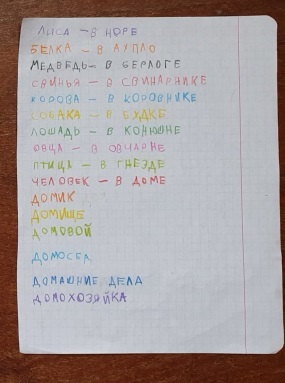 ЛИСА – В НОРЕ
БЕЛКА – В ДУПЛО
МЕДВЕДЬ – В БЕРЛОГЕ
СВИНЬЯ – В СВИНАРНИКЕ
КОРОВА – В КОРОВНИКЕ
СОБАКА – В БУДКЕ
ЛОШАДЬ – В КОНЮШНЕ
ОВЦА – В ОВЧАРНЕ
ПТИЦА – В ГНЕЗДЕ
ЧЕЛОВЕК – В ДОМЕ
ДОМИК
ДОМИЩЕ
ДОМОВОЙ
ДОМОСЕД
ДОМАШНИЕ ДЕЛА
ДОМОХОЗЯЙКА